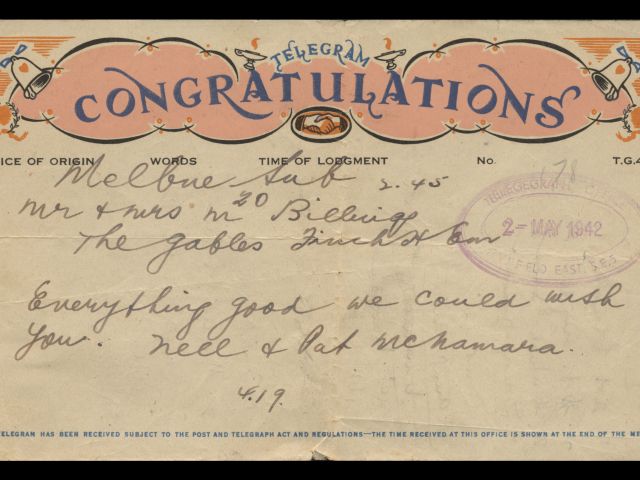 TELEGRAM
CONGRATULATIONS
ICE OF ORIGIN WORDS TIME OF LODGMENT No. T.G.4
Melbne Sub 2.45
20
178
Mr & Mrs M Billings
The Gables Finch St Em
TELEGRAPH
2 - MAY 1942
FIELD EAST, S.E.5
Everything good we could wish
you. Nell & Pat McNamara.
4.19.
TELEGRAM HAS BEEN RECEIVED SUBJECT TO THE POST AND TELEGRAPH ACT AND REGULATIONS—THE TIME RECEIVED AT THIS OFFICE IS SHOWN AT THE END OF THE ME